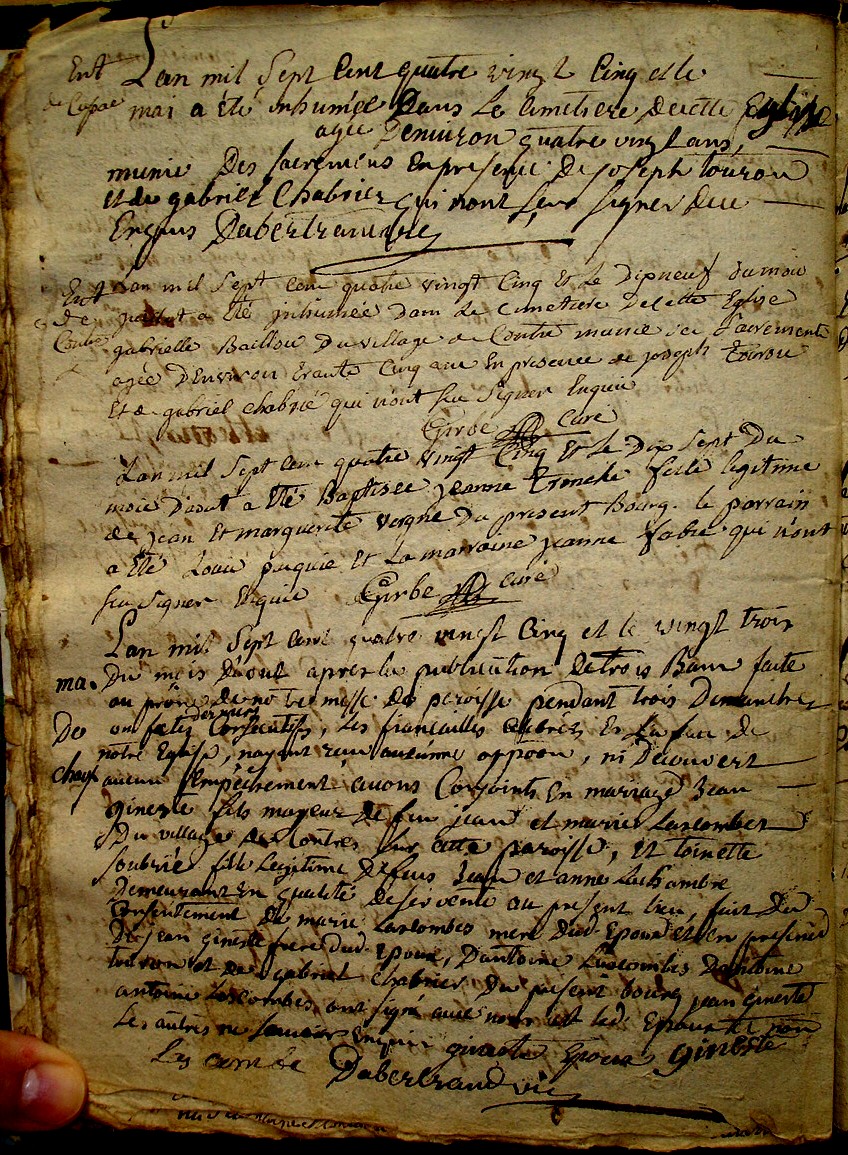 Ent Lan mil Sept Cent quatre vingt Cinq et le
mai a été inhumée Dans Le Cimetiere de cette Eglise
agée Denviron quatre vingt ans,
munie Des Sacremens en presence de joseph touron
et de gabriel Chabrier qui n'ont Seu Signer de ce
Enquis Dabertrand
Ent Lan mil Sept Cent quatre vingt Cinq Et Le Dixneuf du mois
de juillet a Eté inhumée dans Le Cimetiere De cette Eglise
gabrielle Baillou Du village de Contre munie des Sacrements
agée D'Environ trante Cinq ans En presence de joseph Tourou
Et de gabriel chabrié qui n'ont Seu Signer Enquis
Girbe Curé
Lan mil Sept Cent quatre vingt Cinq Et Le Dix Sept Du
mois d'aout a Eté Baptisée jeanne Tronche fille legitime
de jean Et marguerite vergne Du present Bourg. le parrain
a Eté Louis puquie Et La marraine jeanne fabre qui n'ont
Seu Signer Enquis Girbe curé
Lan mil Sept Cent quatre vingt Cinq et le vingt trois
Du mois D'aout apres la publication de trois Bans faite
ma. au prône de notre messe de paroisse pendant trois Dimanches
De ou fetes Consecutifs, Les fiançailles celebrées En La face de
notre Eglise, n'ayant reçu aucunne oppoon, ni Decouvert
aucun Empêchement avons Conjoints En mariage Jean
gineste fils mayeur de feu jean et marie Lascombes
Du village de Contres Sur cette paroisse, et toinette
Soubrié fille Legitime de feus Jean et anne Lachambre
Demeurant En qualité de Servente au present Lieu, fait du
Consentement de marie Lascombes mere dud. Epoux et en presence
De jean gineste frere dud. Epoux, D'antoine Lascombes D'antoine
touron et de gabriel Chabrier Du present bourg jean gineste
antoine Lascombes ont signé avec nous et led. Epoux et non
Les autres ne Sauoir Enquis gineste Epoux gineste
Las combe Dabertrand vic